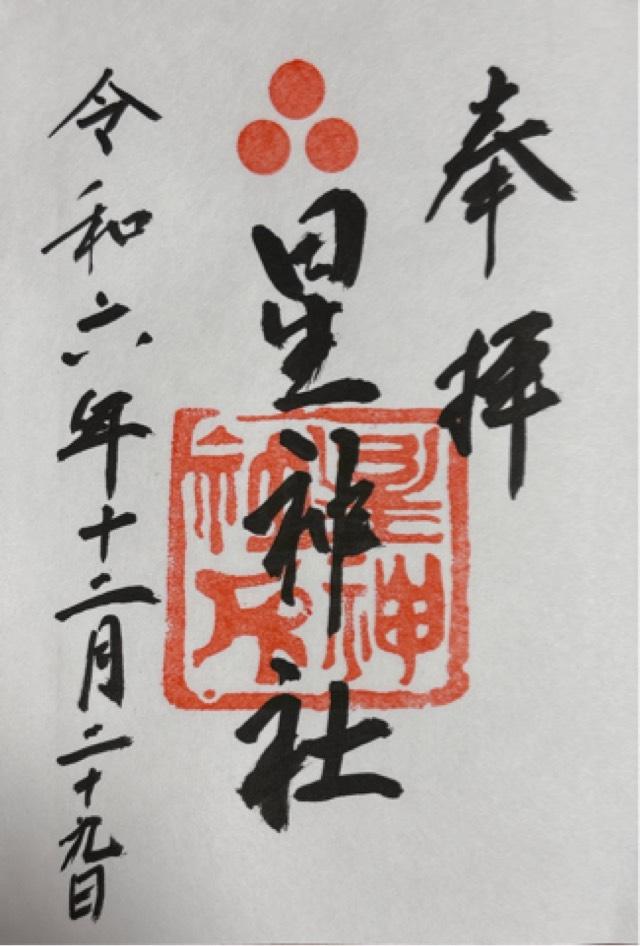 奉拝
星神社
令和六年十二月二十九日